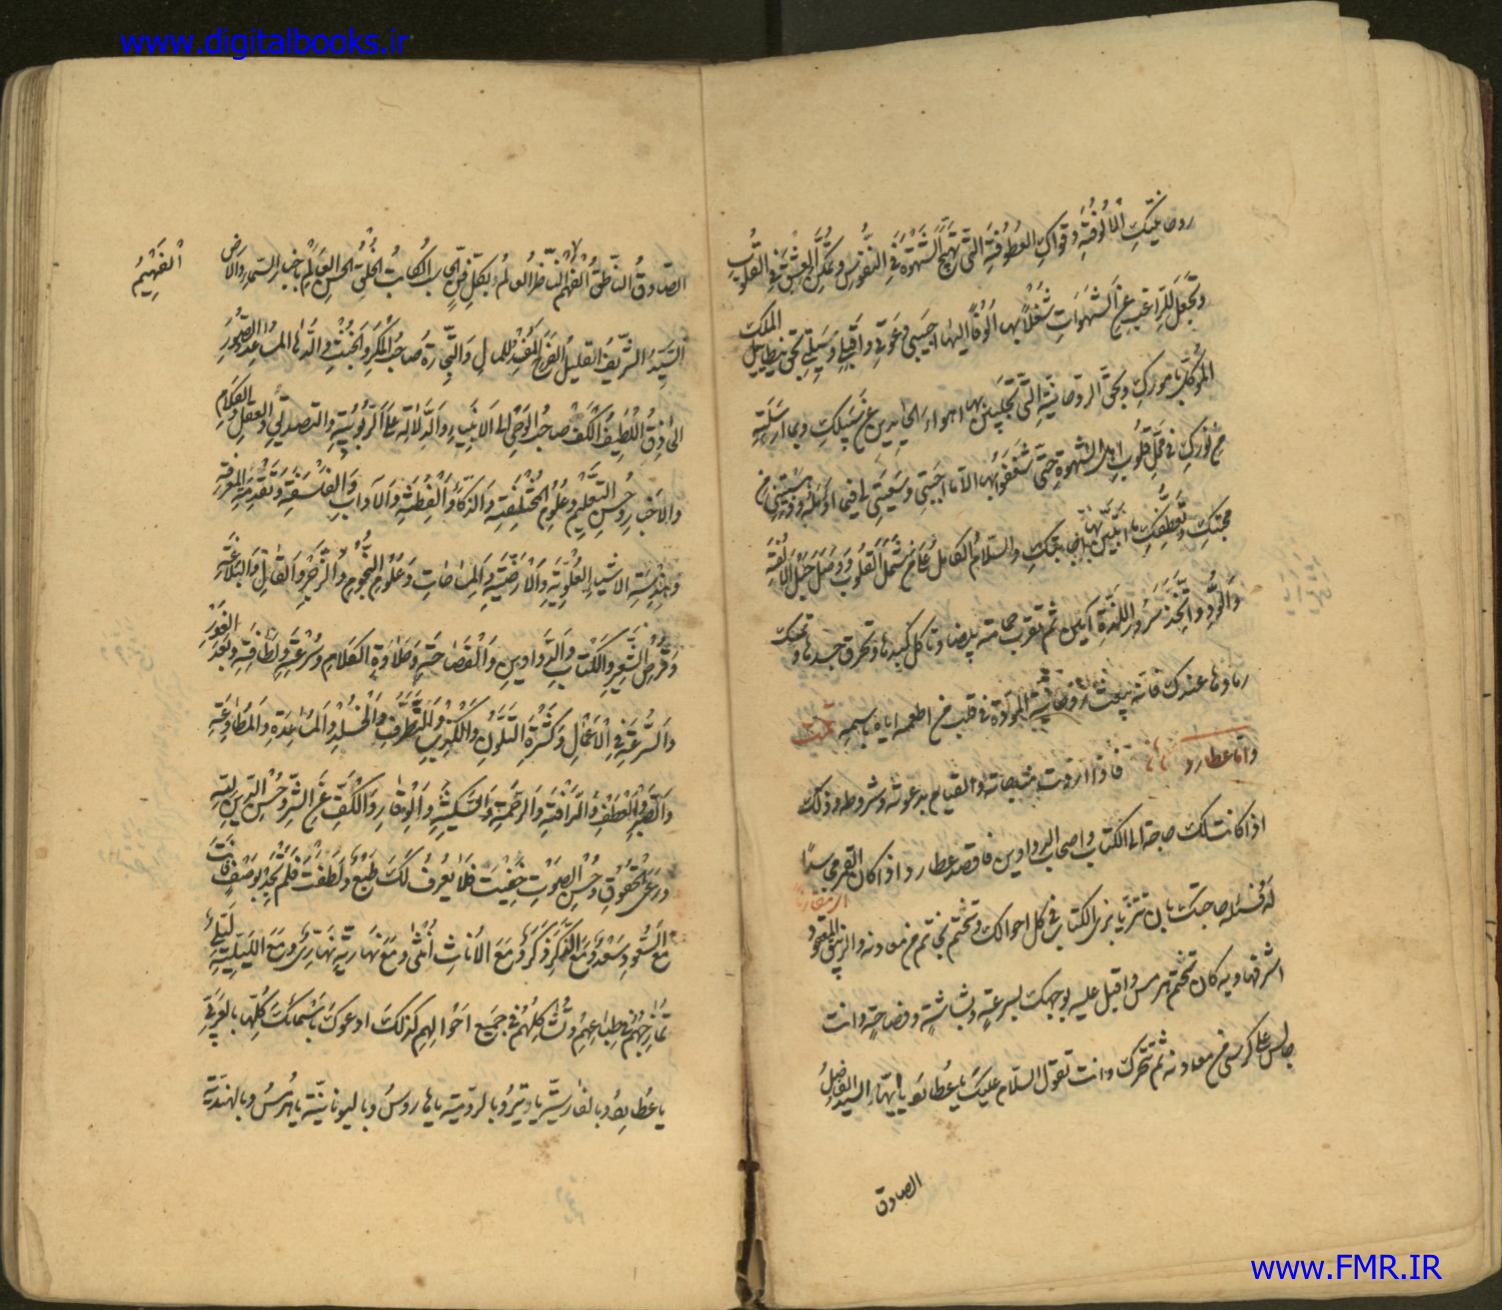 www.digitalbooks.ir
روحانيتك المألوفة وقواك العطوفة التي تهيج الشهوة في النفوس وتمكن العشق في القلوب
وتجعل للراغب عن الشهوات شغلا بها الوفا اليها اجيبي دعوتي واقبلي وسيلتي بحق بيطاييل الملك
الموكل بامورك وبحق الروحانية التي تجلبين بها اهواء الحايدين عن سبيلك وبما ارسلته
من نورك في محل قلوب اهل الشهوة حتى شغفوا بها الا ما اجبتي وسعيتي لي فيما
محبتك وتعطفك والسلام الكامل على من شمل القلوب ووصل حبل الالفة
والمودة واتخذ سرور اللذة آمين ثم تقرب حمامة بيضا وتاكل كبدها وتحرق جسدها وتمسك
رمادها عندك فانه يبعث روحانية المودة في قلب من اطعمه اياه باسمه تمت
واما عطارد فاذا اردت مناجاته والقيام بدعوته وشروطه وذلك
اذا كانت لك حاجة الى الكتاب واصحاب الدواوين فاقصد عطارد اذا كان القمر
له فسله حاجتك بان تتزيا بزي الكتاب في كل احوالك وتختم بخاتم من معادنه والزيبق المعقود
اشرفها وبه كان تختم هرمس واقبل عليه بوجهك بسرعة وبشاشة وفصاحة وانت
جالس على كرسي من معادنه ثم تتحرك وانت تقول السلام عليك يا عطارد يا ايها السيد الفاضل
الصادق
الصادق الناطق الفهم الناظر العالم بكل فن الحاسب الكاتب الخلق الحسن العالم باخبار السماء والارض
الفهيم
السيد الشريف القليل الفرح المفيد للمال والتجارة صاحب المكر والخبث والدهاء المساعد الصبور
الحاذق اللطيف الكف صاحب الوحي الى الانبياء والدلالة على الربوبية والتصديق والعقل والكلام
والاخبار وحسن التعليم وعلوم المختلفة والذكاء والفطنة والاداب والفلسفة وتقدمة المعرفة
وهندسة الاشياء العلوية والارضية والمساحات وعلوم النجوم والزجر والفال والبلاغة
وقرض الشعر والكتاب والدواوين والفصاحة وحلاوة الكلام وسرعته ولطافته وبعد الغور
والسرعة في الاعمال وكثرة التلون والكذب والتظرف والخلد والمساعدة والمطاوعة
والصبر والعطف والرافة والرحمة والسكينة والوقار والكف عن الشر وحسن التدين لله
ورعى الحقوق وحسن الصوت خفيت فلا يعرف لك طبع ولطفت فلم تحد بوصف فانت
مع السعود سعد ومع الذكر ذكر ومع الاناث انثى ومع نهارية نهاري ومع الليلية ليلي
تمازجهم في طباعهم وتشاكلهم في جميع احوالهم كذلك ادعوك باسمائك كلها بالعربي
يا عطارد وبالفارسية يا تير وبالرومية يا هاروس وباليونانية يا هرمس وبالهندية
www.FMR.IR